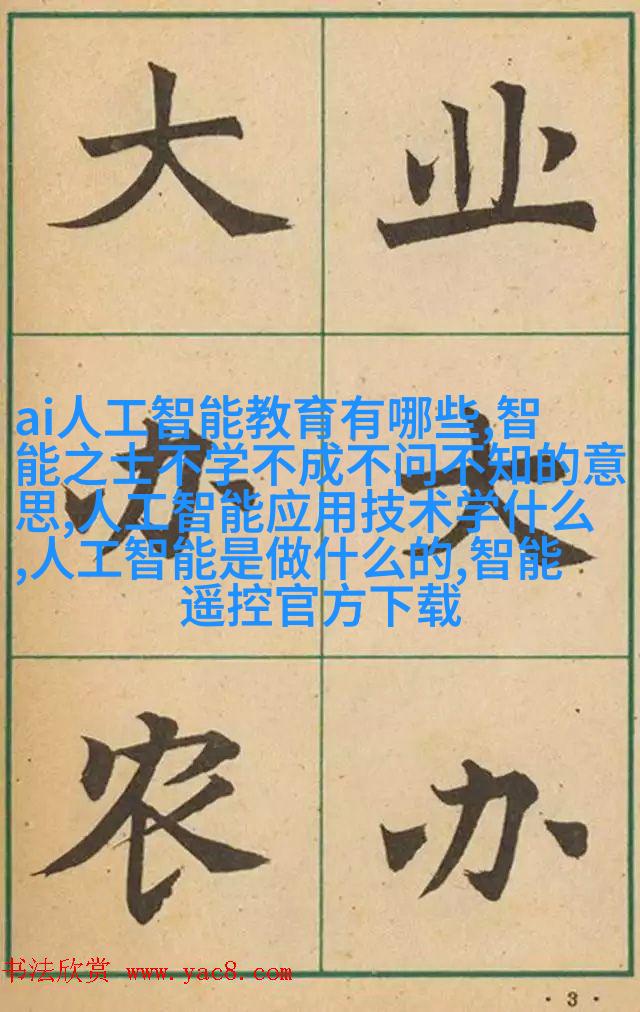 大办农
业大办
ai人工智能教育有哪些,智
能之士不学不成不问不知的意
思,人工智能应用技术学什么
,人工智能是做什么的,智能
遥控官方下载
书法欣赏 www.yac8.com
·3·